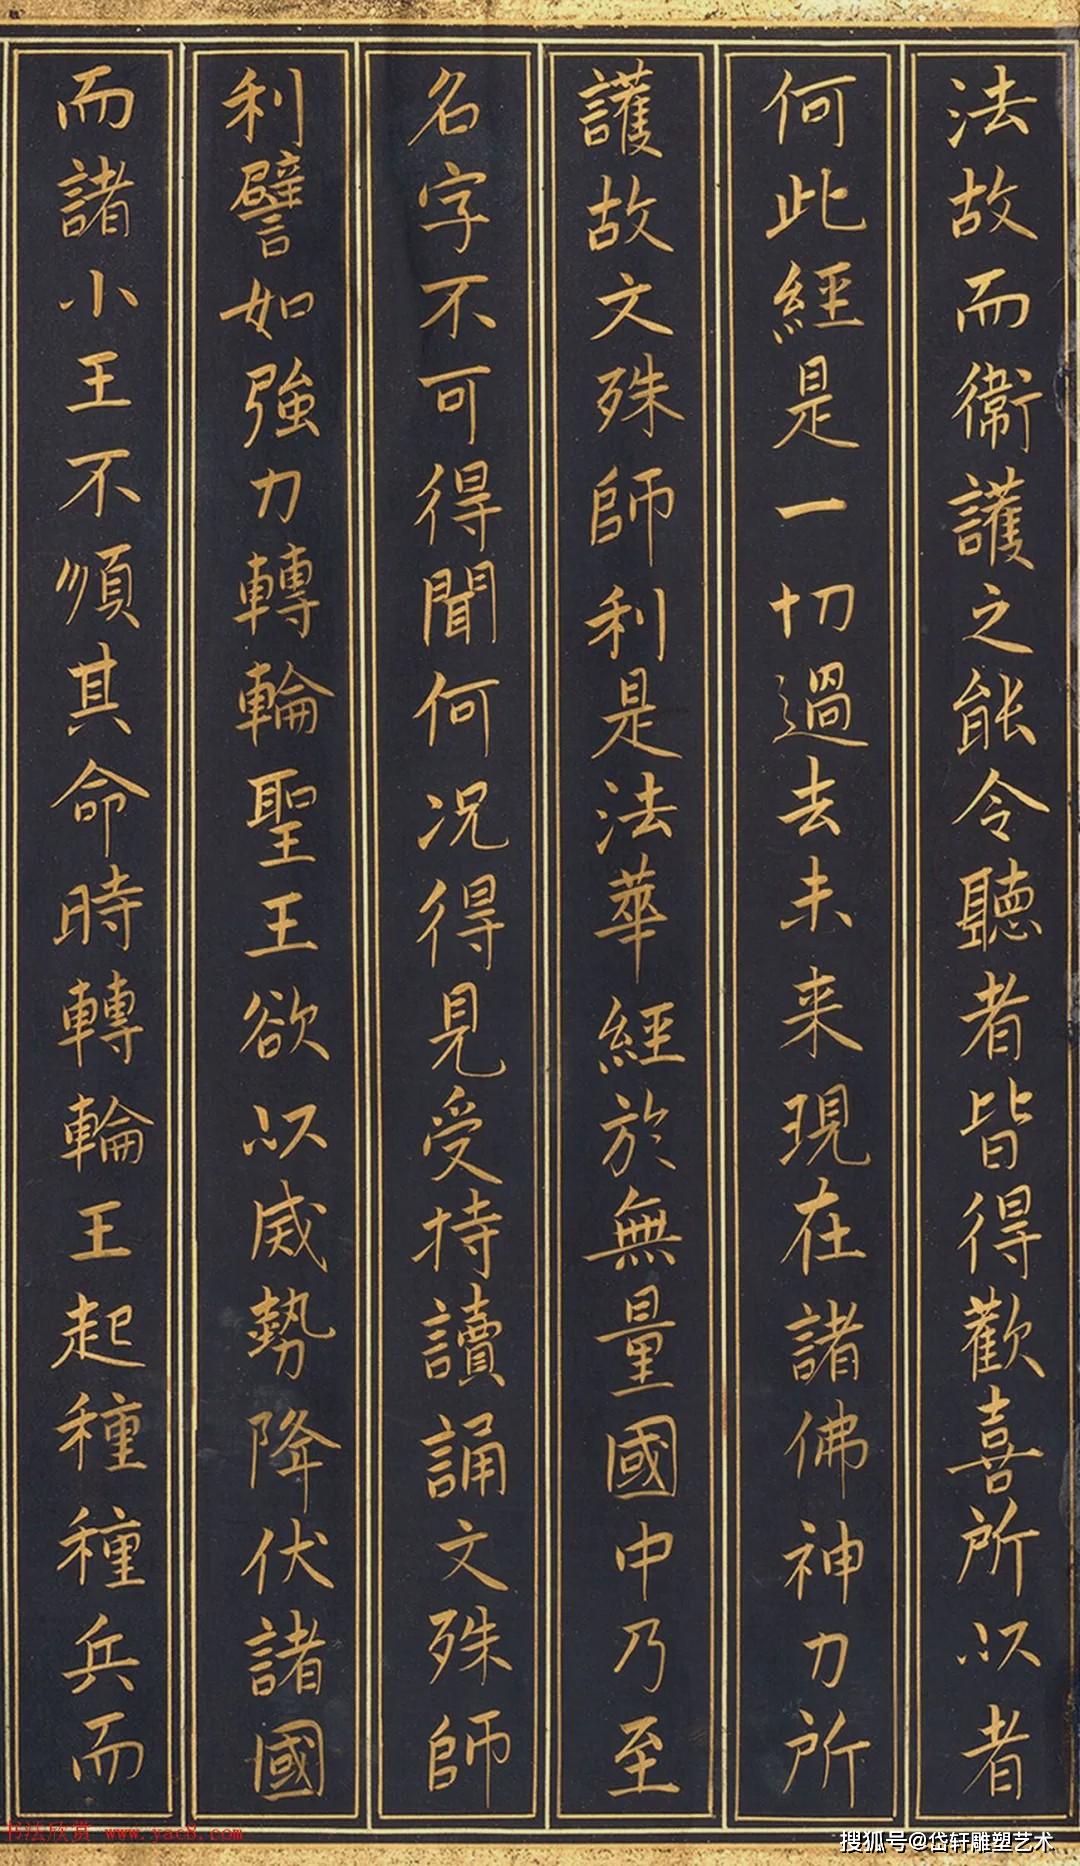 法故而衞護之能令聽者皆得歡喜所以者
何此經是一切過去未来現在諸佛神力所
護故文殊師利是法華經於無量國中乃至
名字不可得聞何况得見受持讀誦文殊師
利譬如強力轉輪聖王欲以威勢降伏諸國
而諸小王不順其命時轉輪王起種種兵而
书法欣赏 www.yac8.com
搜狐号@岱轩雕塑艺术